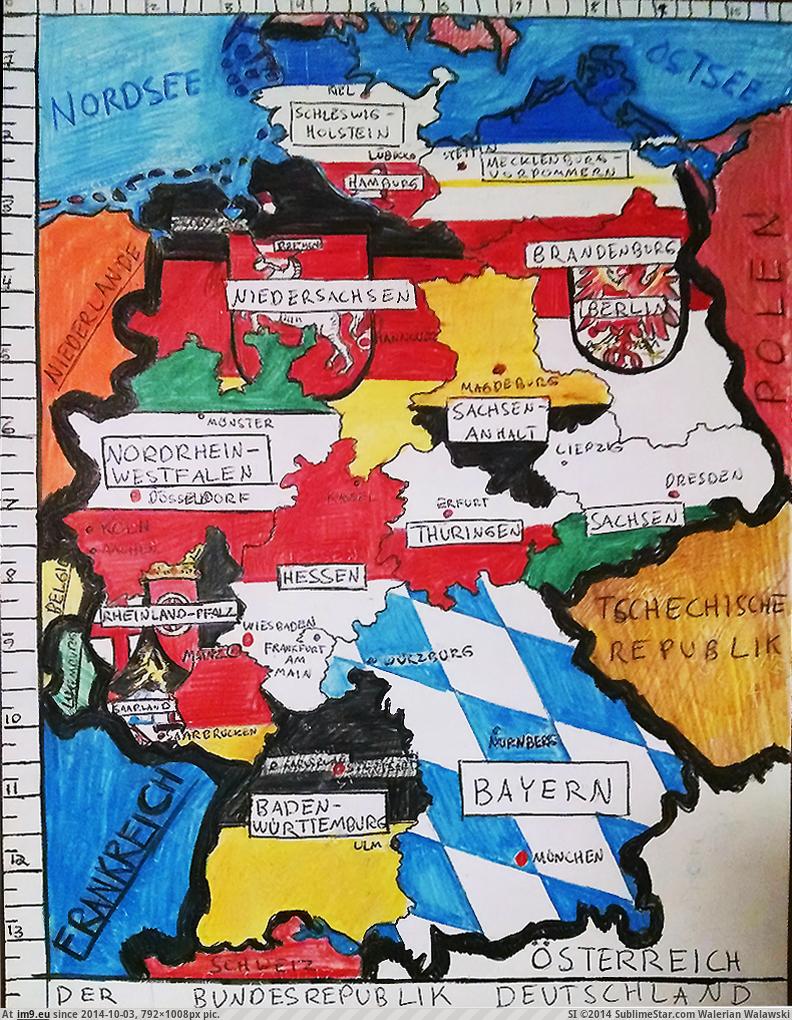 NORDSEE
OSTSEE
KIEL
SCHLESWIG-
HOLSTEIN
LÜBECK
STETTIN
MECKLENBURG-
VORPOMMERN
HAMBURG
NIEDERLANDE
BREMEN
BRANDENBURG
POLEN
NIEDERSACHSEN
BERLIN
HANNOVER
MAGDEBURG
SACHSEN-
ANHALT
MÜNSTER
NORDRHEIN-
WESTFALEN
LIEPZIG
DÜSSELDORF
KASSEL
ERFURT
DRESDEN
THÜRINGEN
SACHSEN
KÖLN
AACHEN
HESSEN
BELGIE
RHEINLAND-PFALZ
WIESBADEN
FRANKFURT
AM
MAIN
MAINZ
TSCHECHISCHE
REPUBLIK
WÜRZBURG
SAARLAND
SAARBRÜCKEN
NÜRNBERG
FRANKREICH
BADEN-
WÜRTTEMBURG
BAYERN
ULM
MÜNCHEN
SCHWEIZ
ÖSTERREICH
DER BUNDESREPUBLIK DEUTSCHLAND
1 2 3
7 8 9 10
2
3
4
5
6
7
8
9
10
11
12
13
At im9.eu since 2014-10-03, 792×1008px pic.
SI ©2014 SublimeStar.com Walerian Walawski